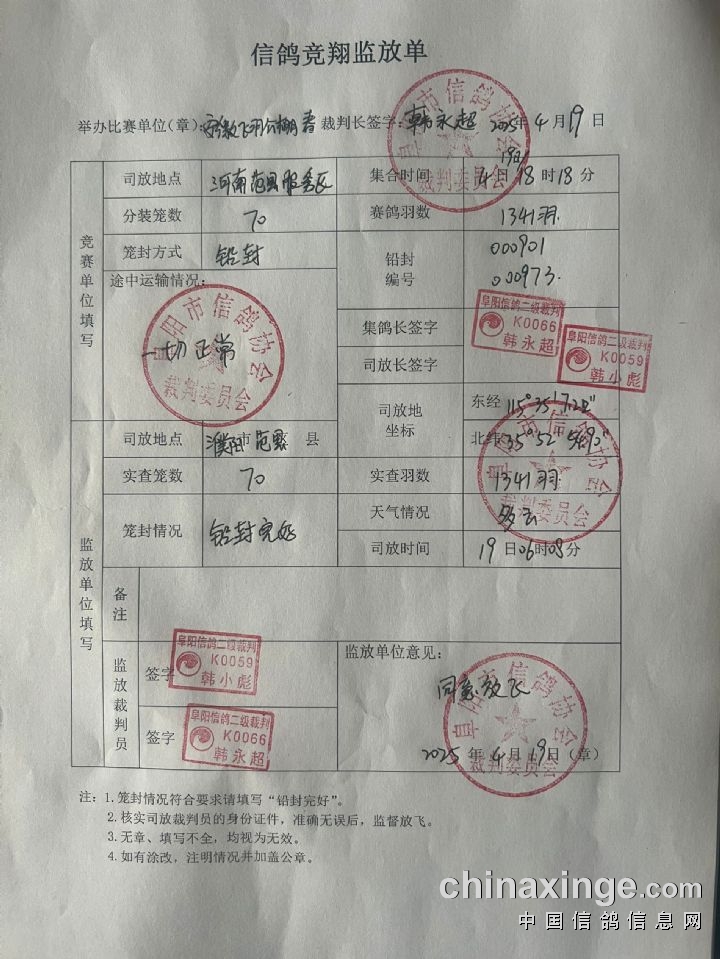 信鸽竞翔监放单
举办比赛单位(章): 安徽飞羽公棚春 裁判长签字: 韩永超 2025年4月19日
竞赛单位填写
司放地点 河南范县服务区 集合时间 4 日 18 时 18 分
分装笼数 70 赛鸽羽数 1341羽
笼封方式 铅封 铅封编号 000901
000973
途中运输情况:
一切正常
集鸽长签字 阜阳信鸽二级裁判 K0066 韩永超
司放长签字 阜阳信鸽二级裁判 K0059 韩小彪
司放地坐标 东经 115°35′
北纬 35°52′
监放单位填写
司放地点 濮阳市范县 县
实查笼数 70 实查羽数 1341羽
笼封情况 铅封完好 天气情况 多云
司放时间 19日06时08分
备注
监放裁判员
签字 阜阳信鸽二级裁判 K0059 韩小彪
签字 阜阳信鸽二级裁判 K0066 韩永超
监放单位意见:
同意放飞
2025年4月19日(章)
阜阳市信鸽协会
裁判委员会
阜阳市信鸽协会
裁判委员会
阜阳市信鸽协会
裁判委员会
阜阳市信鸽协会
裁判委员会
注: 1.笼封情况符合要求请填写“铅封完好”。
2.核实司放裁判员的身份证件,准确无误后,监督放飞。
3.无章、填写不全,均视为无效。
4.如有涂改,注明情况并加盖公章。
chinaxinge.com
中国信鸽信息网